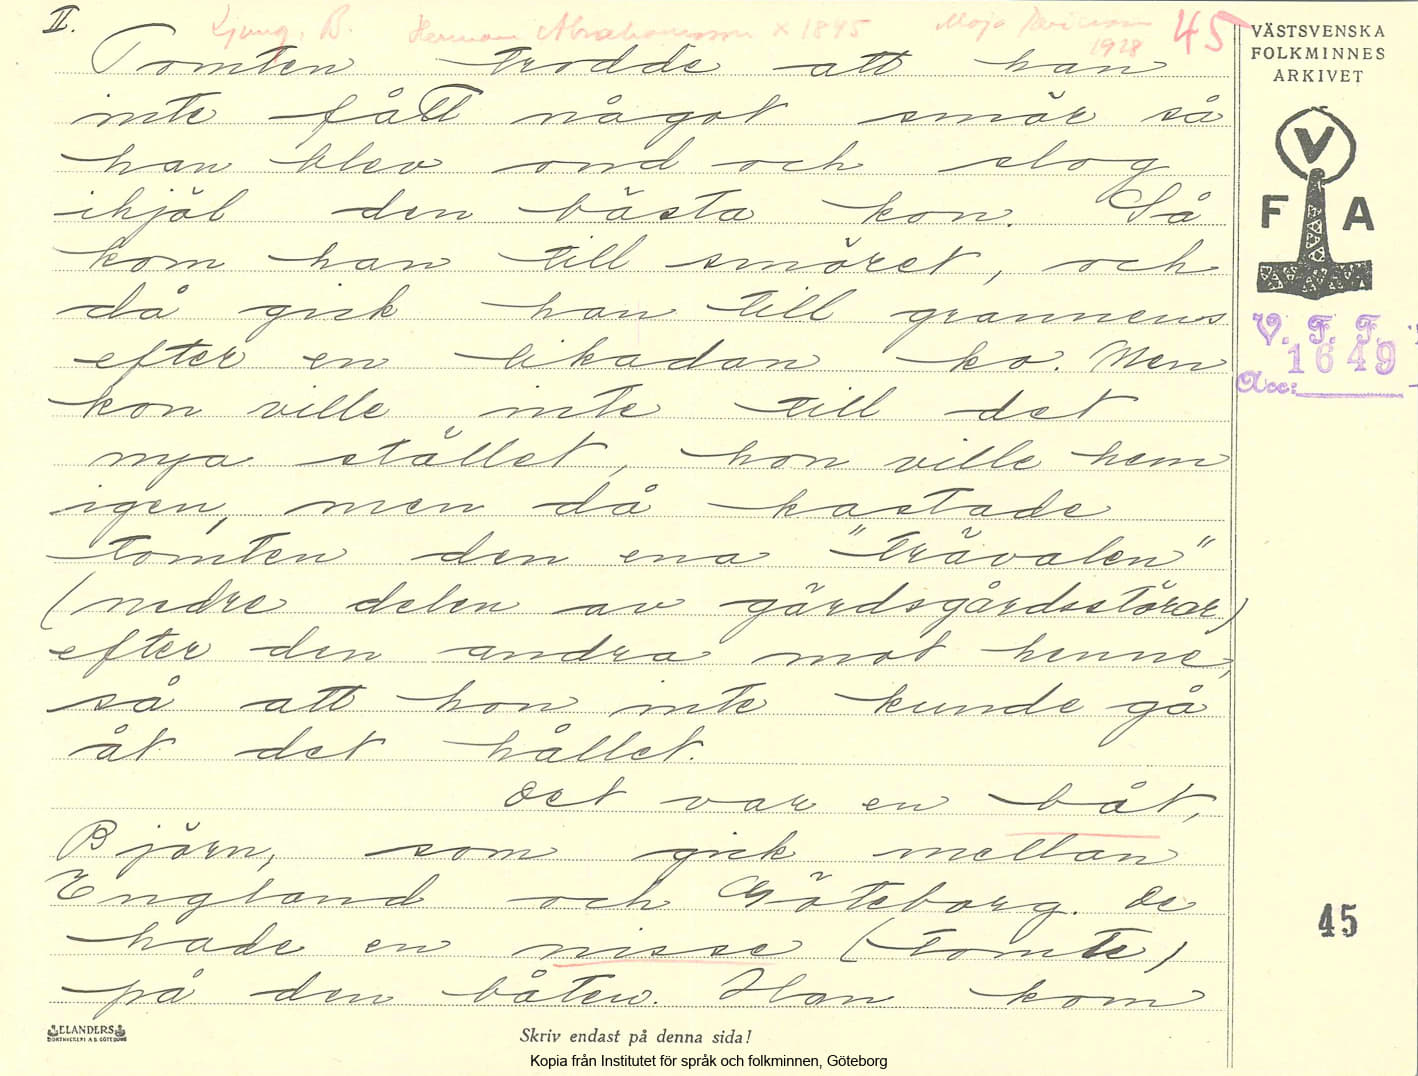 II.
Ljung, B. Herman Abrahamsson x 1845 Maja Ericson 1928 45
Tomten trodde att han
inte fått något smör så
han blev ond och slog
ihjäl den bästa kon. Så
kom han till smöret, och
då gick han till grannens
efter en likadan ko. Men
kon ville inte till det
nya stället, hon ville hem
igen, men då kastade
tomten den ena "trävalen"
(nedre delen av gärdsgårdsstörar)
efter den andra mot henne,
så att hon inte kunde gå
åt det hållet.
Det var en båt,
Björn, som gick mellan
England och Göteborg. De
hade en nisse (tomte)
på den båten. Han kom
VÄSTSVENSKA
FOLKMINNES
ARKIVET
V
F A
V. F. F.
1649
Acc:
45
ELANDERS
BOKTRYCKERI A.B. GÖTEBORG
Skriv endast på denna sida!
Kopia från Institutet för språk och folkminnen, Göteborg